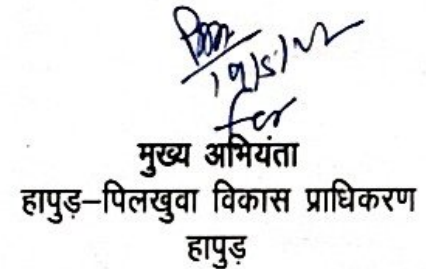 19/5/22
for
मुख्य अभियंता
हापुड़–पिलखुवा विकास प्राधिकरण
हापुड़